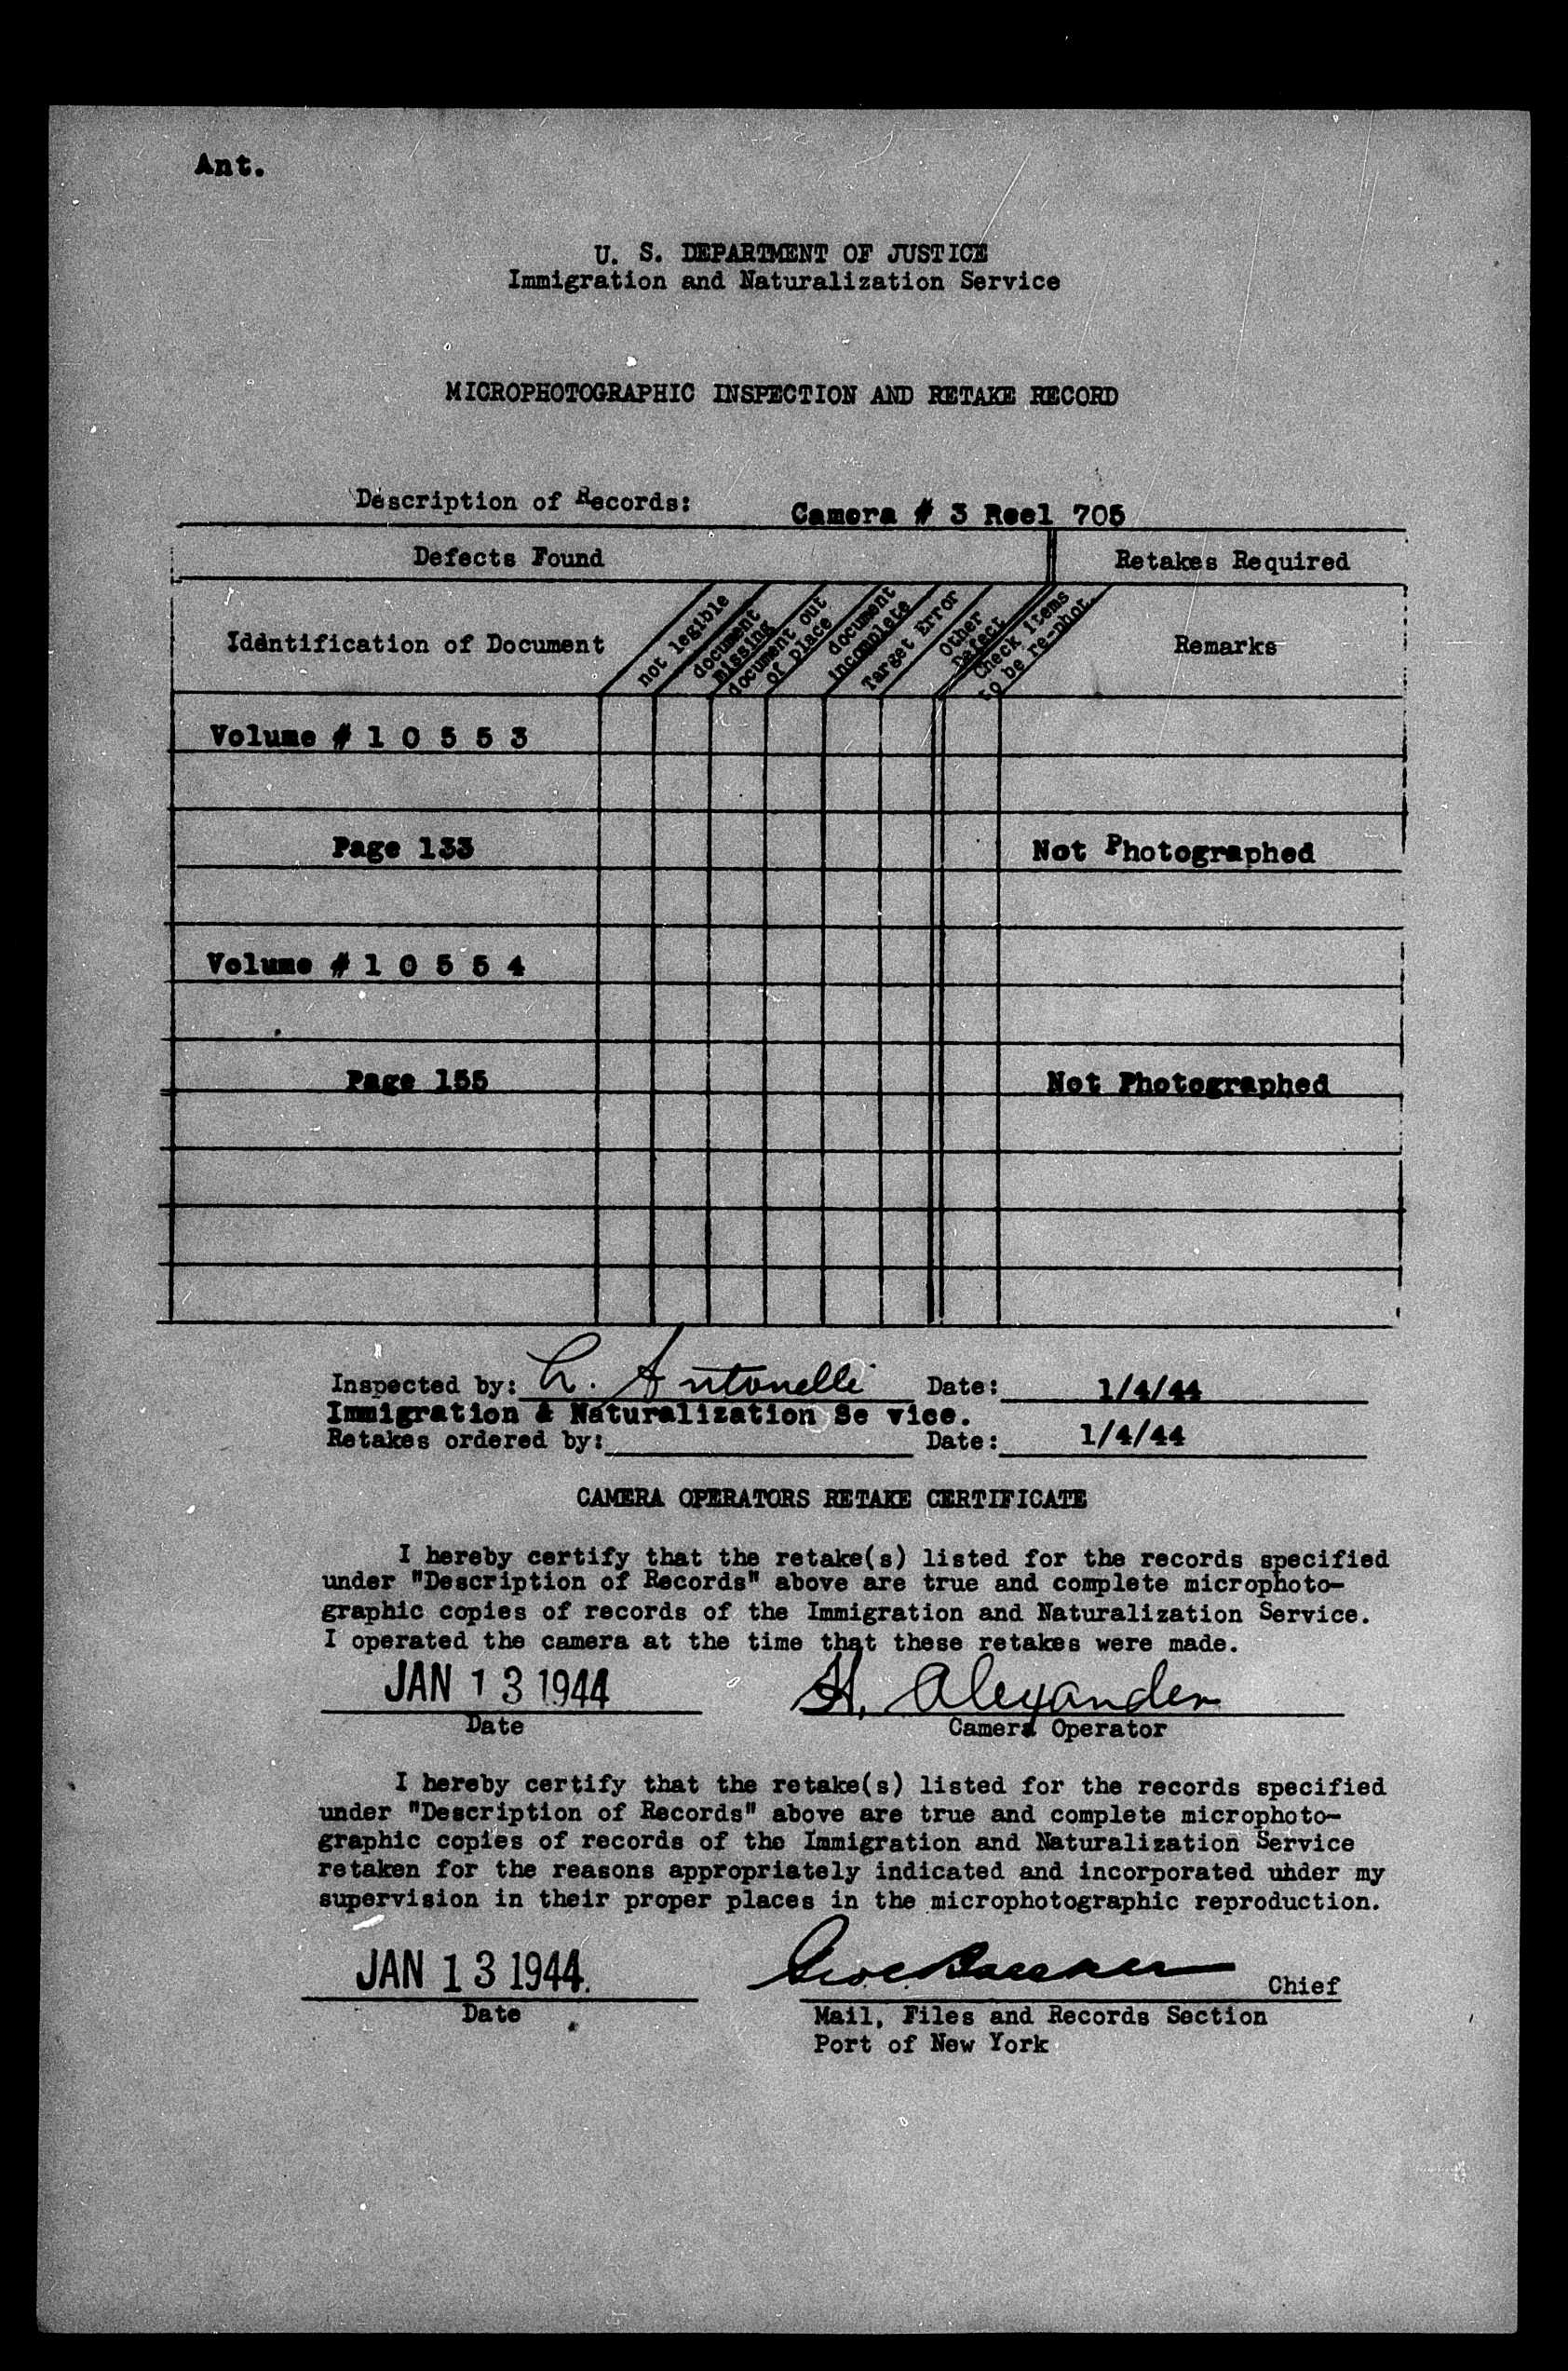 Ant.
U. S. DEPARTMENT OF JUSTICE
Immigration and Naturalization Service
MICROPHOTOGRAPHIC INSPECTION AND RETAKE RECORD
Description of Records: Camera # 3 Reel 705
Defects Found Retakes Required
Identification of Document
not legible
document
missing
document out
of place
document
incomplete
Target Error
Other
Defect
Check items
to be re-phot.
Remarks
Volume # 1 0 5 5 3
Page 133 Not Photographed
Volume # 1 0 5 5 4
Page 155 Not Photographed
Inspected by: L. Antonelli Date: 1/4/44
Immigration & Naturalization Se vice.
Retakes ordered by: Date: 1/4/44
CAMERA OPERATORS RETAKE CERTIFICATE
I hereby certify that the retake(s) listed for the records specified
under "Description of Records" above are true and complete microphoto-
graphic copies of records of the Immigration and Naturalization Service.
I operated the camera at the time that these retakes were made.
JAN 13 1944 H. Alexander
Date Camera Operator
I hereby certify that the retake(s) listed for the records specified
under "Description of Records" above are true and complete microphoto-
graphic copies of records of the Immigration and Naturalization Service
retaken for the reasons appropriately indicated and incorporated under my
supervision in their proper places in the microphotographic reproduction.
JAN 13 1944. Chief
Date Mail, Files and Records Section
Port of New York